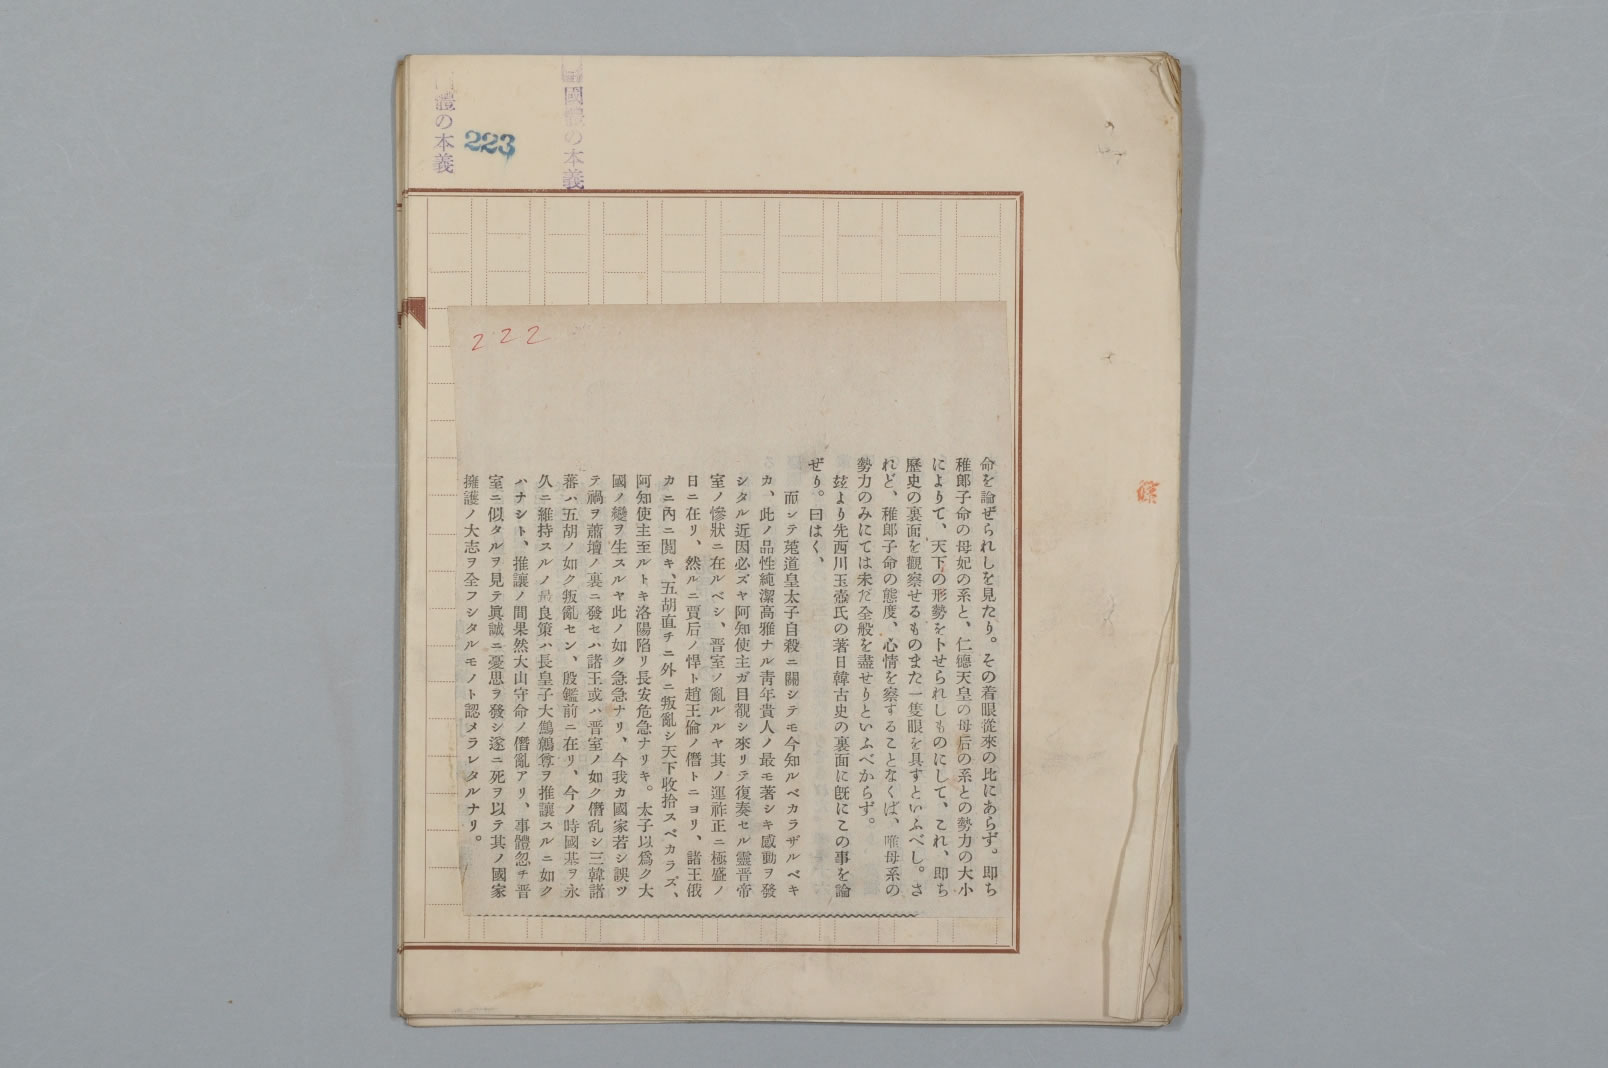 國體の本義
體の本義
223
222
命を論ぜられしを見たり。その着眼從來の比にあらず。即ち
稚郎子命の母妃の系と、仁德天皇の母后の系との勢力の大小
によりて、天下の形勢をトせられしものにして、これ、即ち
歷史の裏面を觀察せるものまた一隻眼を具すといふべし。さ
れど、稚郎子命の態度、心情を察することなくば、唯母系の
勢力のみにては未だ全般を盡せりといふべからず。
玆より先西川玉壺氏の著日韓古史の裏面に既にこの事を論
ぜり。曰はく、
而シテ菟道皇太子自殺ニ關シテモ今知ルベカラザルベキ
カ、此ノ品性純潔高雅ナル靑年貴人ノ最モ著シキ感動ヲ發
シタル近因必ズヤ阿知使主ガ目覩シ來リテ復奏セル靈晋帝
室ノ慘狀ニ在ルベシ、晋室ソ亂ルルヤ其ノ運祚正ニ極盛ノ
日ニ在リ、然ルニ賈后ノ悍ト趙王倫ノ僭トニヨリ、諸王俄
カニ內ニ鬩キ、五胡直チニ外ニ叛亂シ天下收拾スベカラズ、
阿知使主至ルトキ洛陽陷リ長安危急ナリキ。太子以爲ク大
國ノ變ヲ生スルヤ此ノ如ク急急ナリ、今我カ國家若シ誤ツ
テ禍ヲ蕭墻ノ裏ニ發セハ諸王或ハ晋室ノ如ク僭乱シ三韓諸
蕃ハ五胡ノ如ク叛亂セン、殷鑑前ニ在リ、今ノ時國基ヲ永
久ニ維持スルノ最良策ハ長皇子大鷦鷯尊ヲ推讓スルニ如ク
ハナシト、推讓ノ間果然大山守命ノ僭亂アリ、事體忽チ晋
室ニ似タルヲ見テ眞誠ニ憂思ヲ發シ遂ニ死ヲ以テ其ノ國家
擁護ノ大志ヲ全フシタルモノト認メラレタルナリ。